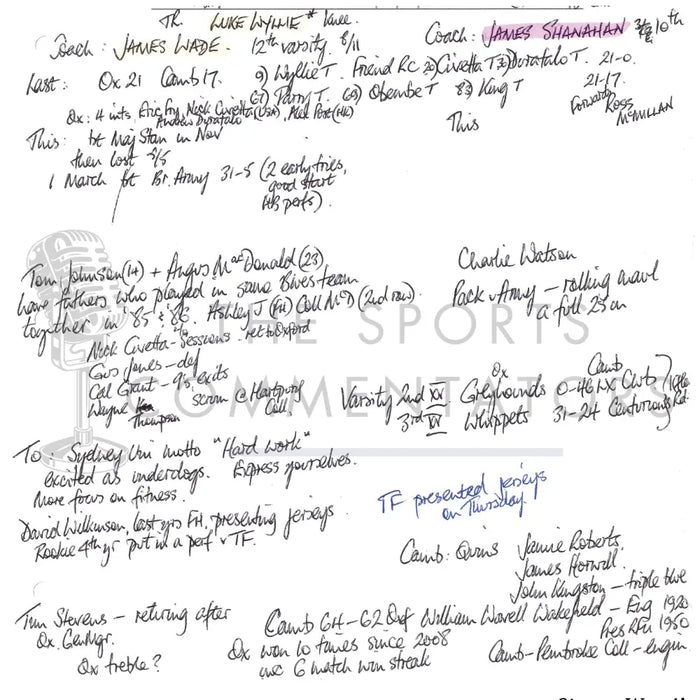 TR. LUKE WYLLIE * knee.
Coach: JAMES WADE. 12th varsity. 8/11
Coach: JAMES SHANAHAN 10th
Last: Ox 21 Camb 17. 9) Wyllie T. Friend RC 20) Civetta T Duratalo T. 21-0.
67) Parry T. 69) Obembe T 83) King T 21-17.
Forward Ross McMILLAN
Ox: 4 ints, Eric Fry, Nick Civetta (USA),
Andrew Duratalo
This: bt Maj Stan in Nov
This
then lost
1 March bt Br. Army 31-5 (2 early tries,
good start
HB perfs).
Tom Johnson (14) + Angus MacDonald (23)
have fathers who played in same Blues team
together in '85 & '86. Ashley J (FH) Coll McD (2nd row).
Charlie Watson
Pack v Army – rolling maul
a full 25m
THE SPORTS
COMMENTATORS
Nick Civetta – sessions. ret to Oxford
Gus Jones – def
Cal Grant – 9's, exits
Wayne Thompson scrum @ Hartpury Coll
Ox Camb
Varsity 2nd XV Greyhounds 0-46 LX Club
3rd XV Whippets 31-24 Centurions
To: Sydney Uni motto "Hard work"
excited as underdogs. Express yourselves.
More focus on fitness.
David Wilkinson, last yrs FH, presenting jerseys
Rookie 4th yr put in a perf TF.
TF presented jerseys
on Thursday.
Camb: Quins Jamie Roberts,
James Horwill
John Kingston – triple blue
Tim Stevens – retiring after
Ox. Gen Mgr.
Ox treble?
Camb GH – G2 Def William Wavell Wakefield – Eng 1920
Pres RFU 1950
Ox won 10 times since 2008
inc 6 match win streak
Camb – Pembroke Coll – engin.